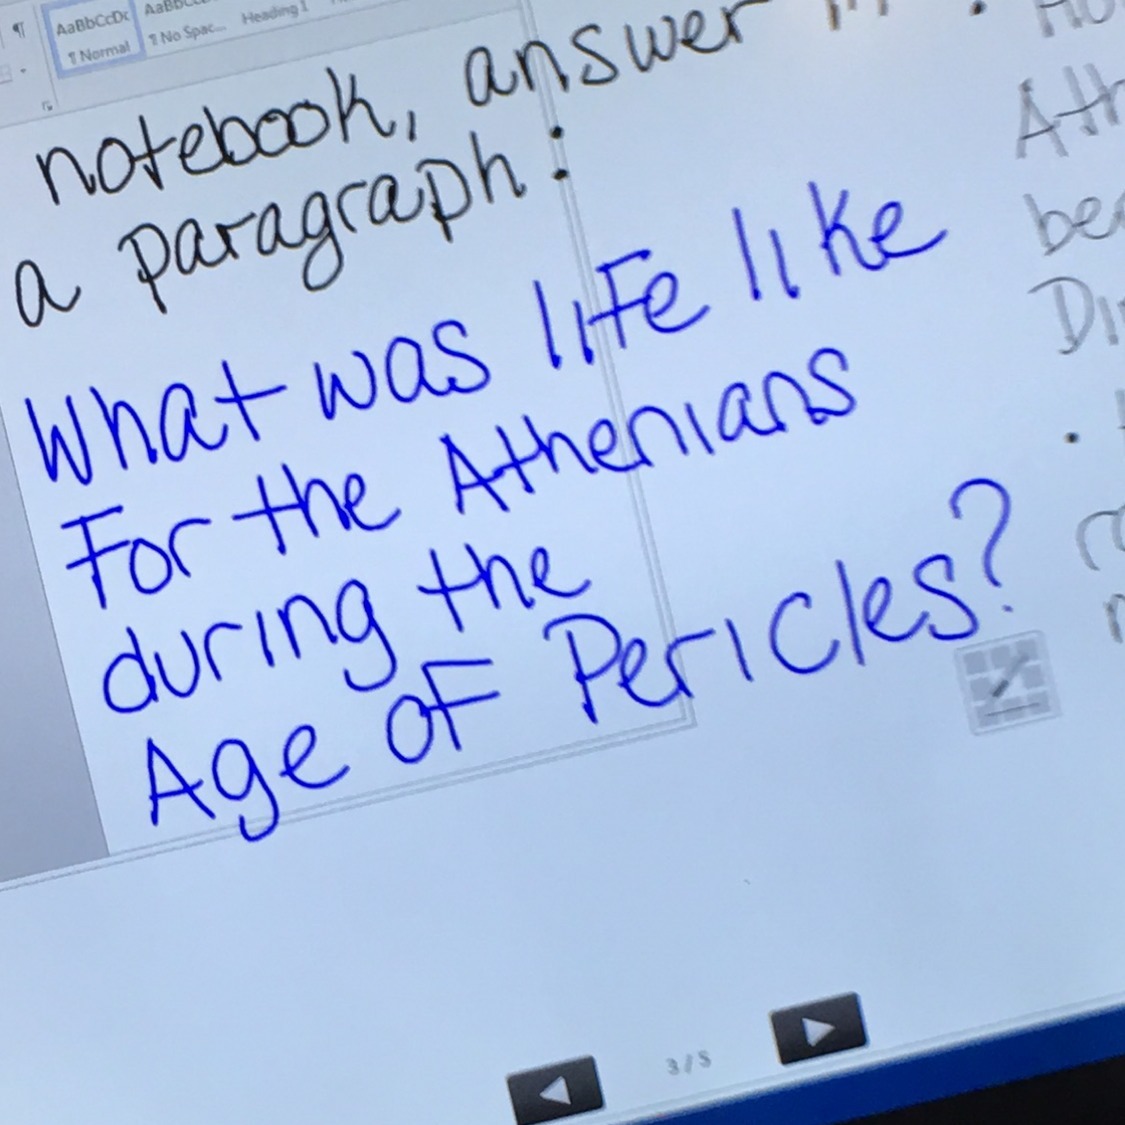 ¶
AaBbCcDc
¶ Normal
¶ No Spac...
Heading 1
notebook, answer in
a paragraph:
What was life like
For the Athenians
during the
Age of Pericles?
Ath
be
Di
3/5